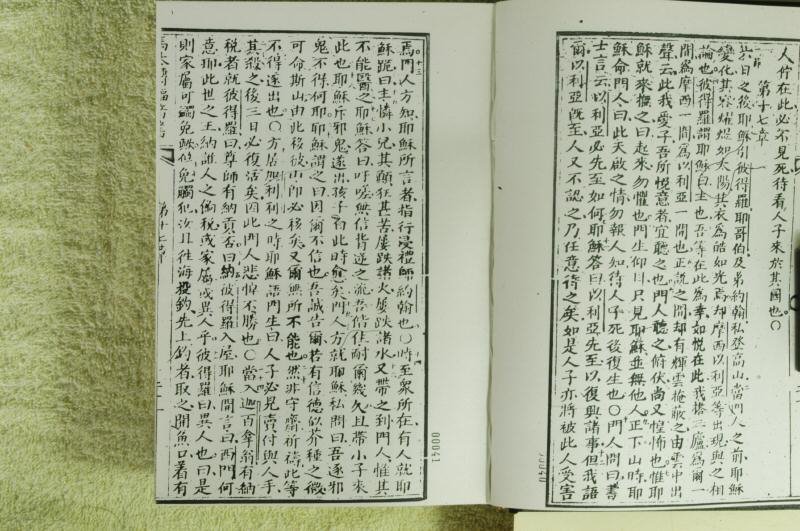 人佇在此必不見死待看人子來於其國也〇
第十七章
六日之後耶穌引彼得羅耶哥伯及弟約翰私登高山當門人之前耶穌
變化其容燿焜如太陽其衣爲皓如光焉却摩西以利亞等出現與之相
論也彼得羅謂耶穌曰主也吾等在此爲幸如悅在此我搭三廬爲爾一
間爲摩西一間爲以利亞一間也正說之間却有輝雲掩蔽之由雲中出
聲云此我愛子吾所悅意者宜聽之也門人聽之俯伏尚又惶怖也惟耶
穌就來撫之曰起來勿懼也門生仰目只見耶穌並無他人正下山時耶
穌命門人曰此天啟之情勿報人知待人子死後復生也〇門人問曰書
士言云以利亞必先至如何耶穌答曰以利亞先至以復興諸事但我語
爾以利亞旣至人又不認之乃任意待之矣如是人子亦將被此人受害
焉門人方知耶穌所言者指行浸禮師約翰也〇時至衆所在有人就耶
穌跪曰主憐小兒其顛狂甚苦屢跌諸火屢跌諸水又帶之到門人惟其
不能醫之耶穌答曰吁嗟無信背逆之流吾偕住耐爾幾久且帶小子來
此也耶穌斥邪鬼遂出孩子而此時愈矣門人方就耶穌私問曰吾逐邪
鬼不得何耶耶穌謂之曰因爾不信也吾誠告爾若有信德似芥種之微
可命斯山由此移彼山即必移矣又爾無所不能也然非守齋祈禱此等
不得逐出也〇方居加利利之時耶穌語門生曰人子必見賣付與人手
其殺之後三日必復活矣因此門人悲悼不勝也〇當入迦百拿翁有納
稅者就彼得羅曰尊師有納貢否曰納彼得羅入屋耶穌開言曰西門何
意耶此世之王納誰人之餉稅或家屬或異人乎彼得羅曰異人也曰是
則家屬可蠲免然但免觸犯汝且往海投釣先上釣者取之開魚口着有
00041